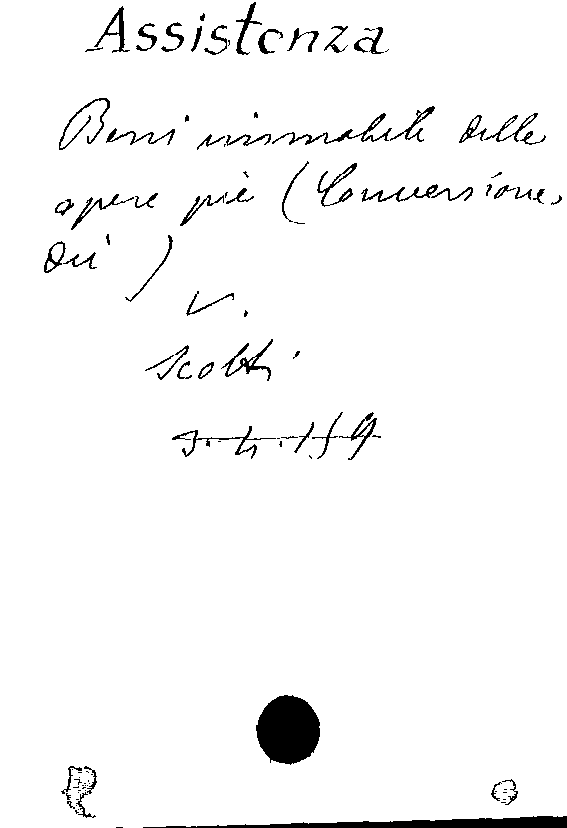 Assistenza
Beni immobili delle
opere pie (Conversione
dei)
V.
Scotti
3.4.159